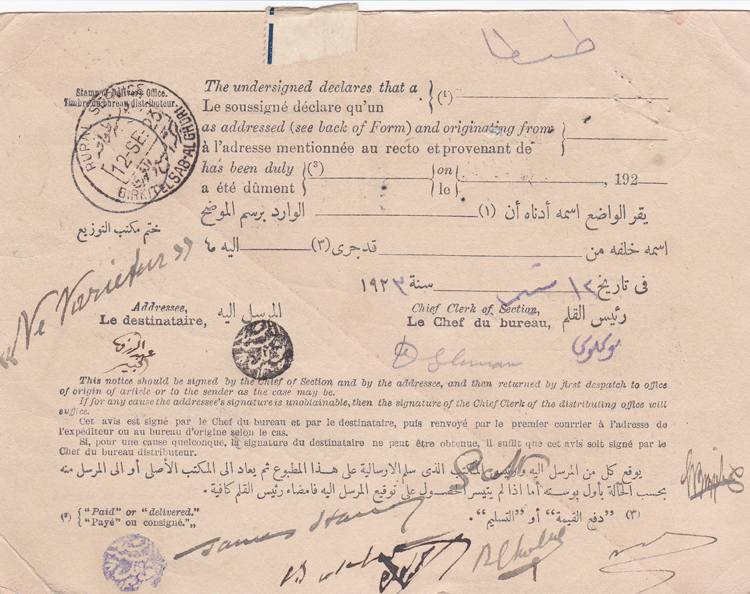 طنطا
Stamp of Delivery Office.
Timbre du bureau distributeur.
RURAL SERVICE
12·SE
BIRKIT EL SAB-AL GHURI
The undersigned declares that a
Le soussigné déclare qu'un
(1)
as addressed (see back of Form) and originating from
à l'adresse mentionnée au recto et provenant de
has been duly
a été dûment
(3)
on
le
, 192
ختم مكتب التوزيع
يقر الواضع اسمه أدناه أن (١) الوارد برسم الموضح
اسمه خلفه من قد جرى (٣) اليه ٩
فى تاريخ ١٢ سبتمبر سنة ١٩٢٣
« Ne Varietur »
Addressee,
Le destinataire,
المرسل اليه
Chief Clerk of Section,
Le Chef du bureau,
رئيس القلم
This notice should be signed by the Chief of Section and by the addressee, and then returned by first despatch to office
of origin of article or to the sender as the case may be.
If for any cause the addressee's signature is unobtainable, then the signature of the Chief Clerk of the distributing office will
suffice.
Cet avis est signé par le Chef du bureau et par le destinataire, puis renvoyé par le premier courrier à l'adresse de
l'expéditeur ou au bureau d'origine selon le cas.
Si, pour une cause quelconque, la signature du destinataire ne peut être obtenue, il suffit que cet avis soit signé par le
Chef du bureau distributeur.
يوقع كل من المرسل اليه ورئيس المكتب الذى سلم الارسالية على هذا المطبوع ثم يعاد الى المكتب الأصلى أو الى المرسل منه
بحسب الحالة بأول بوسته أما اذا لم يتيسر الحصول على توقيع المرسل اليه فامضاء رئيس القلم كافية.
(3) "Paid" or "delivered."
"Payé" ou consigné.",
(٣) "دفع القيمة" أو "التسليم".